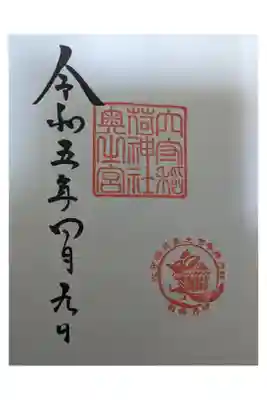 穴守稲
荷神社
奥之宮
令和五年四月九日